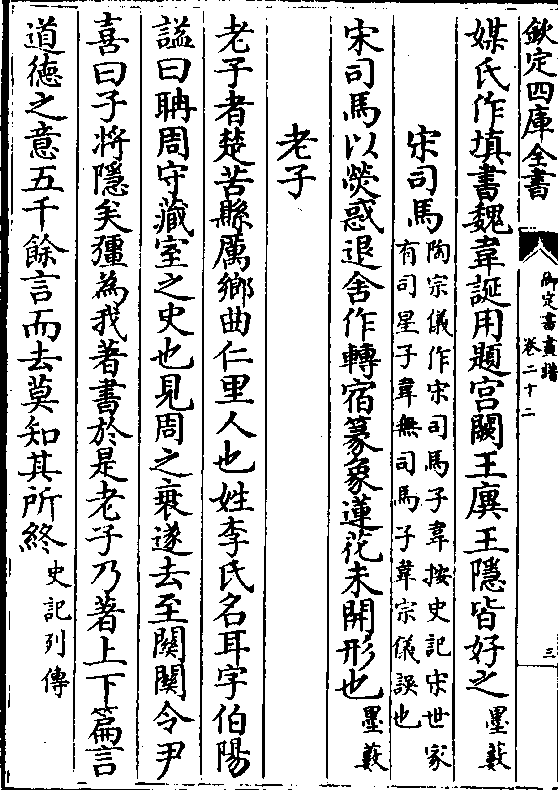 欽定四庫全書
御定書畫譜
卷二十二
三
媒氏作填書魏韋誕用題宮闕王廙王隱皆好之墨藪
宋司馬陶宗儀作宋司馬子韋按史記宋世家
有司星子韋無司馬子韋宗儀誤也
宋司馬以熒惑退舍作轉宿篆象蓮花未開形也墨藪
老子
老子者楚苦縣厲鄉曲仁里人也姓李氏名耳字伯陽
謚曰聃周守藏室之史也見周之衰遂去至關關令尹
喜曰子將隱矣彊為我著書於是老子乃著上下篇言
道德之意五千餘言而去莫知其所終史記列傳